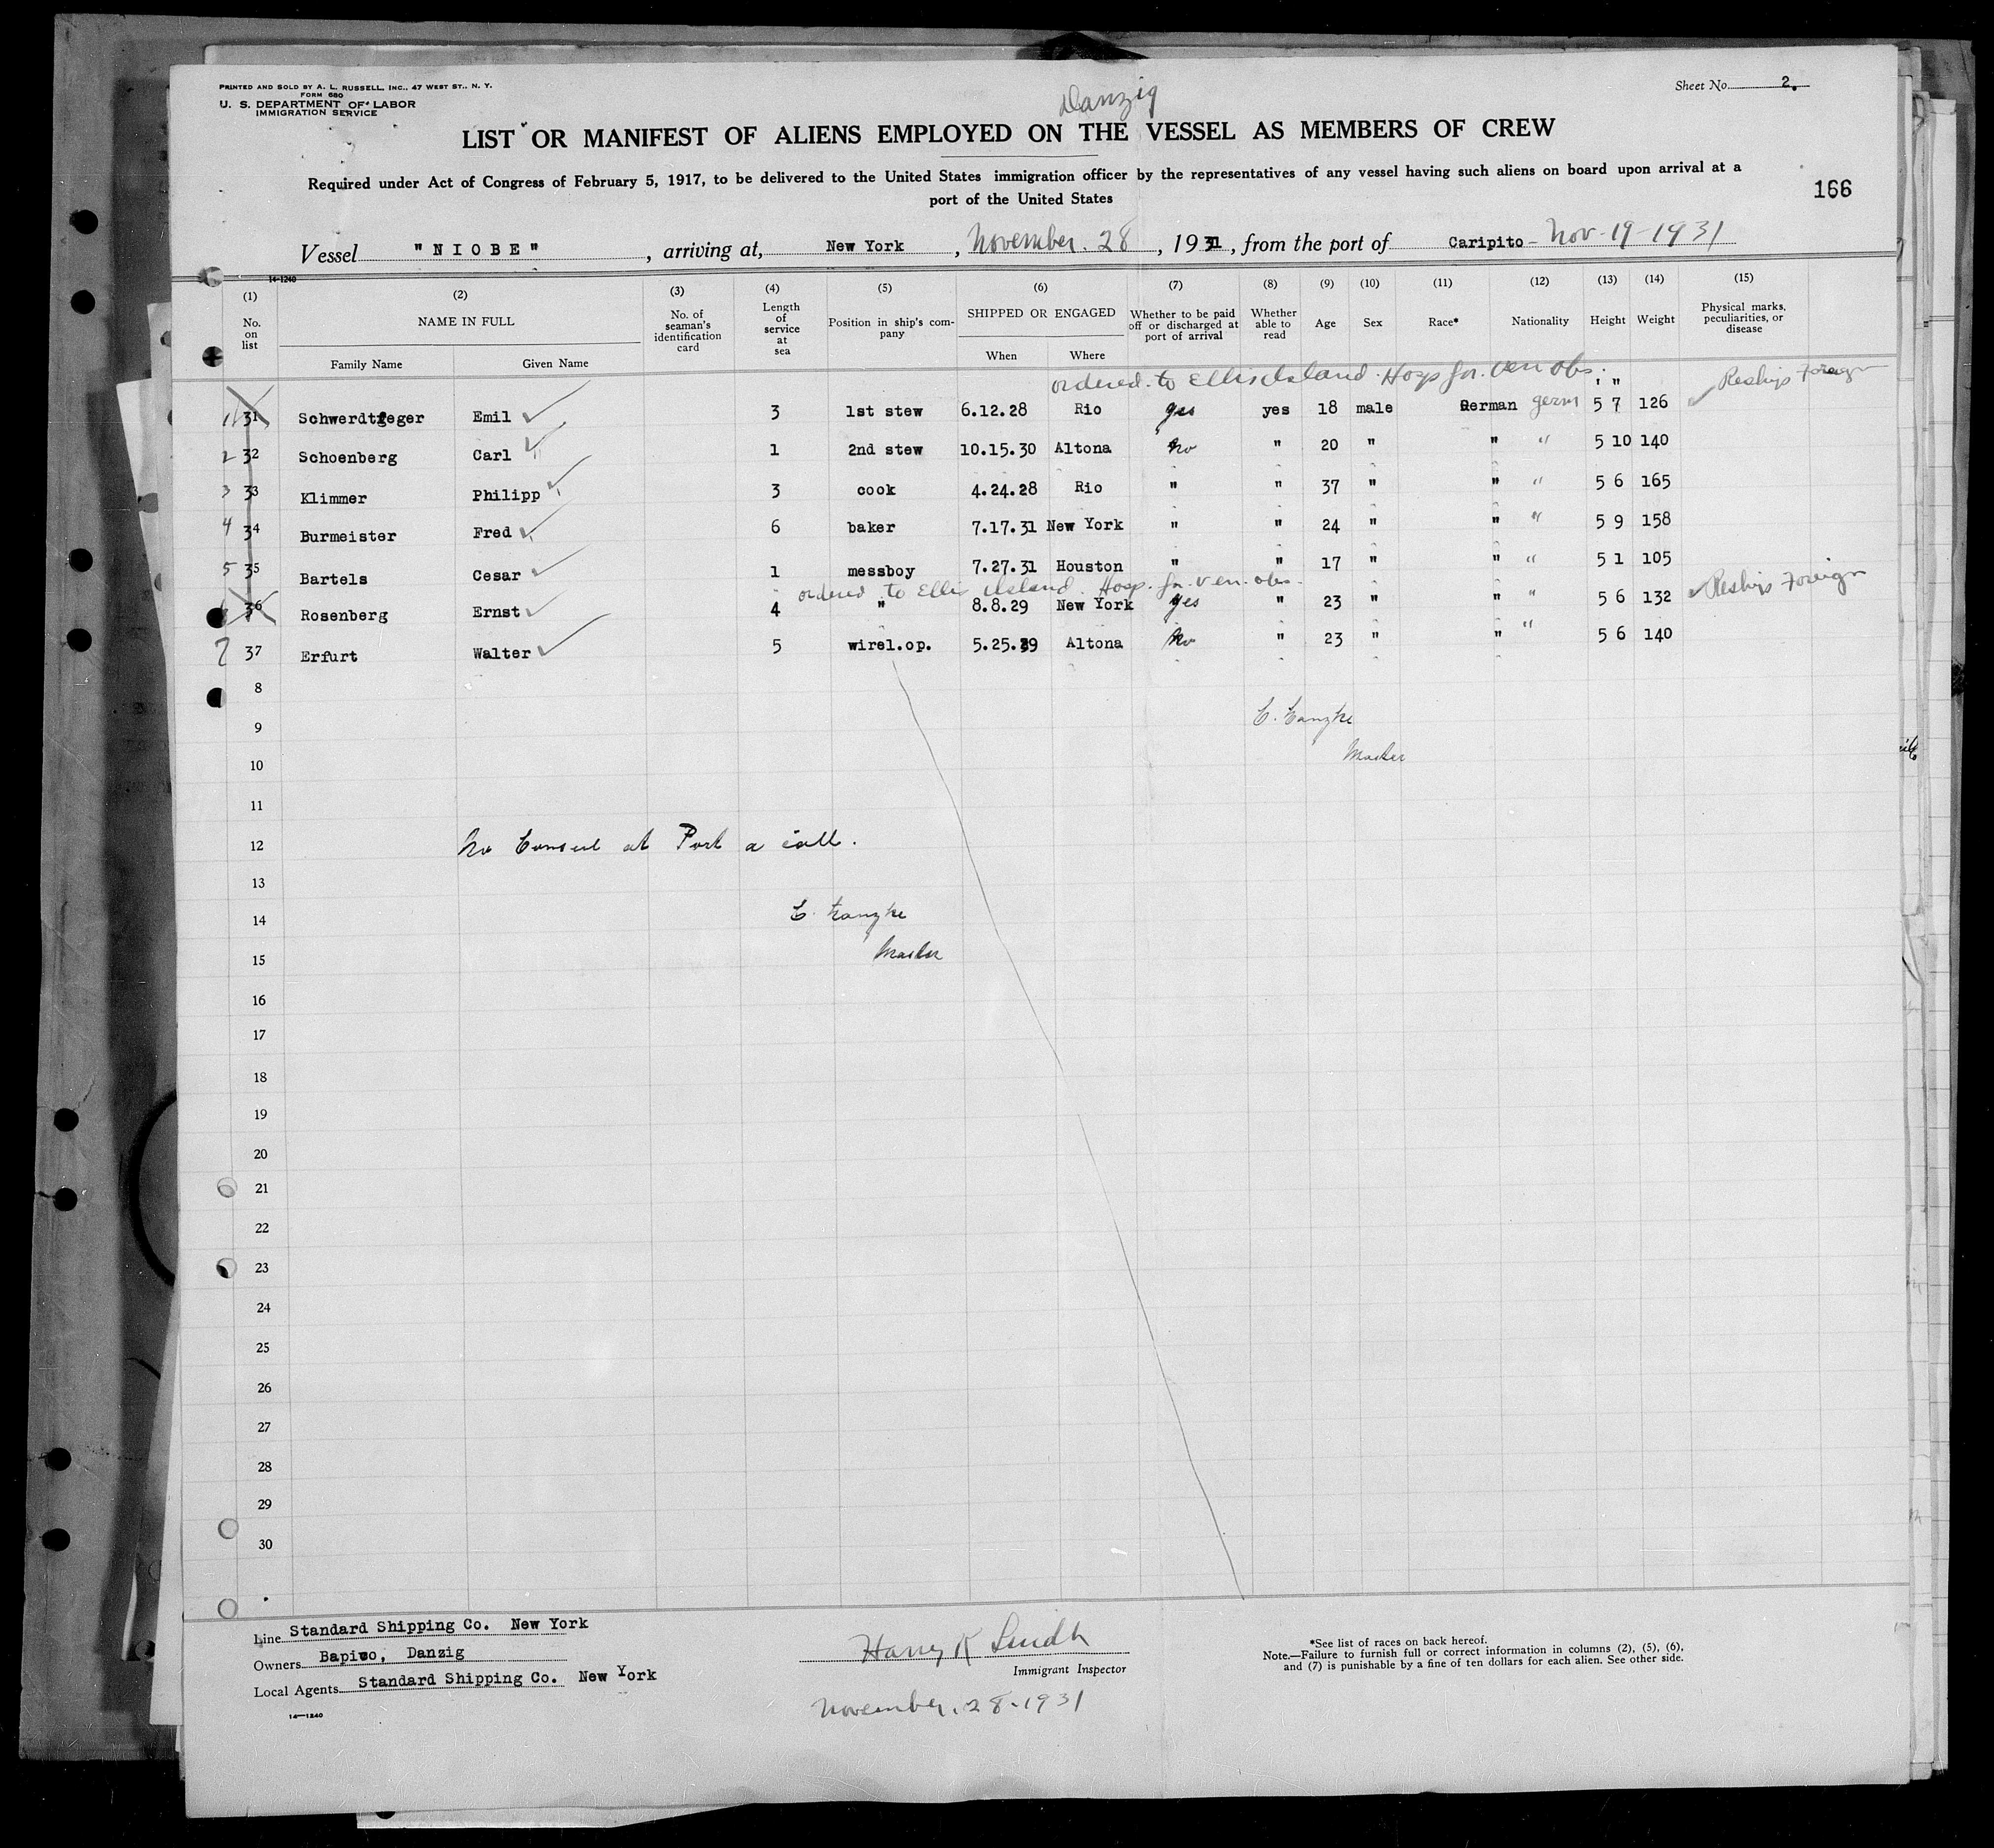 PRINTED AND SOLD BY A. L. RUSSELL, INC., 47 WEST ST., N. Y.
FORM 680
U. S. DEPARTMENT OF LABOR
IMMIGRATION SERVICE
Sheet No. 2.
Danzig
LIST OR MANIFEST OF ALIENS EMPLOYED ON THE VESSEL AS MEMBERS OF CREW
Required under Act of Congress of February 5, 1917, to be delivered to the United States immigration officer by the representatives of any vessel having such aliens on board upon arrival at a
port of the United States
166
Vessel "NIOBE", arriving at, New York, November. 28, 1931, from the port of Caripito - Nov-19-1931
14-1240
(1) No. on list
(2) NAME IN FULL Family Name Given Name
(3) No. of seaman's identification card
(4) Length of service at sea
(5) Position in ship's company
(6) SHIPPED OR ENGAGED When Where
(7) Whether to be paid off or discharged at port of arrival
(8) Whether able to read
(9) Age
(10) Sex
(11) Race*
(12) Nationality
(13) Height
(14) Weight
(15) Physical marks, peculiarities, or disease
ordered to Ellis Island Hosp for ven obs. Reships Foreign
1 31 Schwerdtfeger Emil 3 1st stew 6.12.28 Rio yes yes 18 male German germ 5 7 126
2 32 Schoenberg Carl 1 2nd stew 10.15.30 Altona No " 20 " " " 5 10 140
3 33 Klimmer Philipp 3 cook 4.24.28 Rio " " 37 " " " 5 6 165
4 34 Burmeister Fred 6 baker 7.17.31 New York " " 24 " " " 5 9 158
5 35 Bartels Cesar 1 messboy 7.27.31 Houston " " 17 " " " 5 1 105
ordered to Ellis Island Hosp. for ven. obs. Reships Foreign
36 Rosenberg Ernst 4 " 8.8.29 New York yes " 23 " " " 5 6 132
7 37 Erfurt Walter 5 wirel.op. 5.25.39 Altona No " 23 " " " 5 6 140
8
9
Master
10
11
12 No Consul at Port a call.
13
14
15 Master
16
17
18
19
20
21
22
23
24
25
26
27
28
29
30
Line Standard Shipping Co. New York
Owners Bapivo, Danzig
Local Agents Standard Shipping Co. New York
14—1240
Harry K Lindh
Immigrant Inspector
November. 28-1931
*See list of races on back hereof.
Note.—Failure to furnish full or correct information in columns (2), (5), (6),
and (7) is punishable by a fine of ten dollars for each alien. See other side.